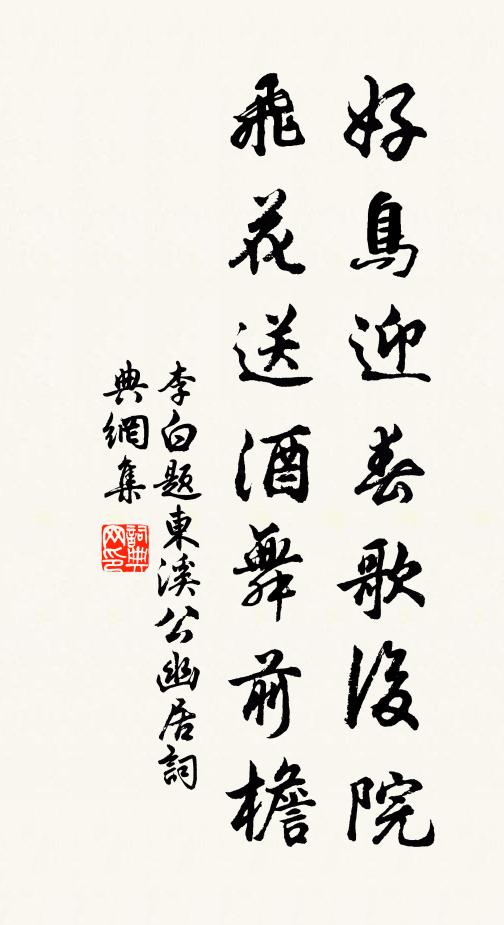 好鳥迎春歌後院
飛花送酒舞前檐
李白題東溪公幽居詞
典網集
詞典網印